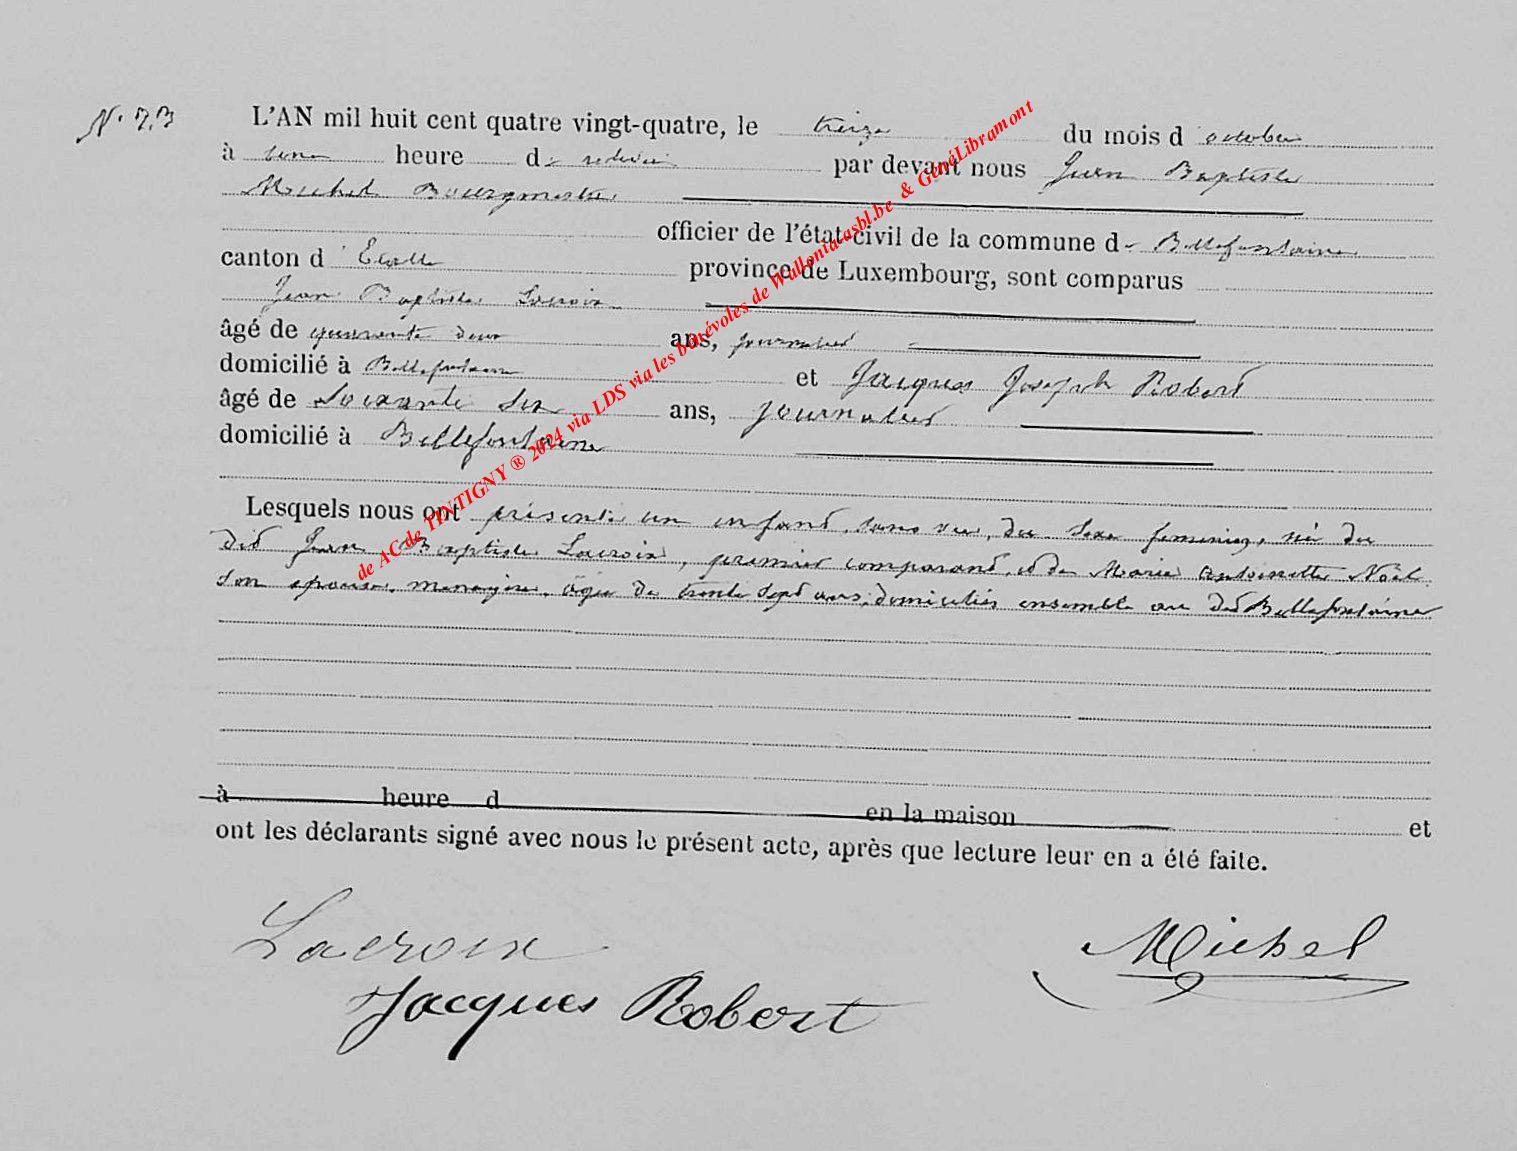 N° 73
L'AN mil huit cent quatre vingt-quatre, le treize du mois d'octobre
à une heure de relevée par devant nous Jean Baptiste
Michel Bourgmestre
officier de l'état-civil de la commune de Bellefontaine
canton d'Etalle province de Luxembourg, sont comparus
Jean Baptiste Lacroix
âgé de quarante deux ans, journalier
domicilié à Bellefontaine et Jacques Joseph Robert
âgé de Soixante ans, journalier
domicilié à Bellefontaine
Lesquels nous ont présenté un enfant, sans vie, du sexe feminin, né du
dit Jean Baptiste Lacroix, premier comparant, et de Marie Antoinette Noël
son epouse, menagère, âgée de trente sept ans, domiciliés ensemble au dit Bellefontaine
à heure d en la maison et
ont les déclarants signé avec nous le présent acte, après que lecture leur en a été faite.
Lacroix
Michel
Jacques Robert
de AC de TINTIGNY ® 2024 via LDS via les bénévoles de Wallonia-asbl.be & GénéLibramont